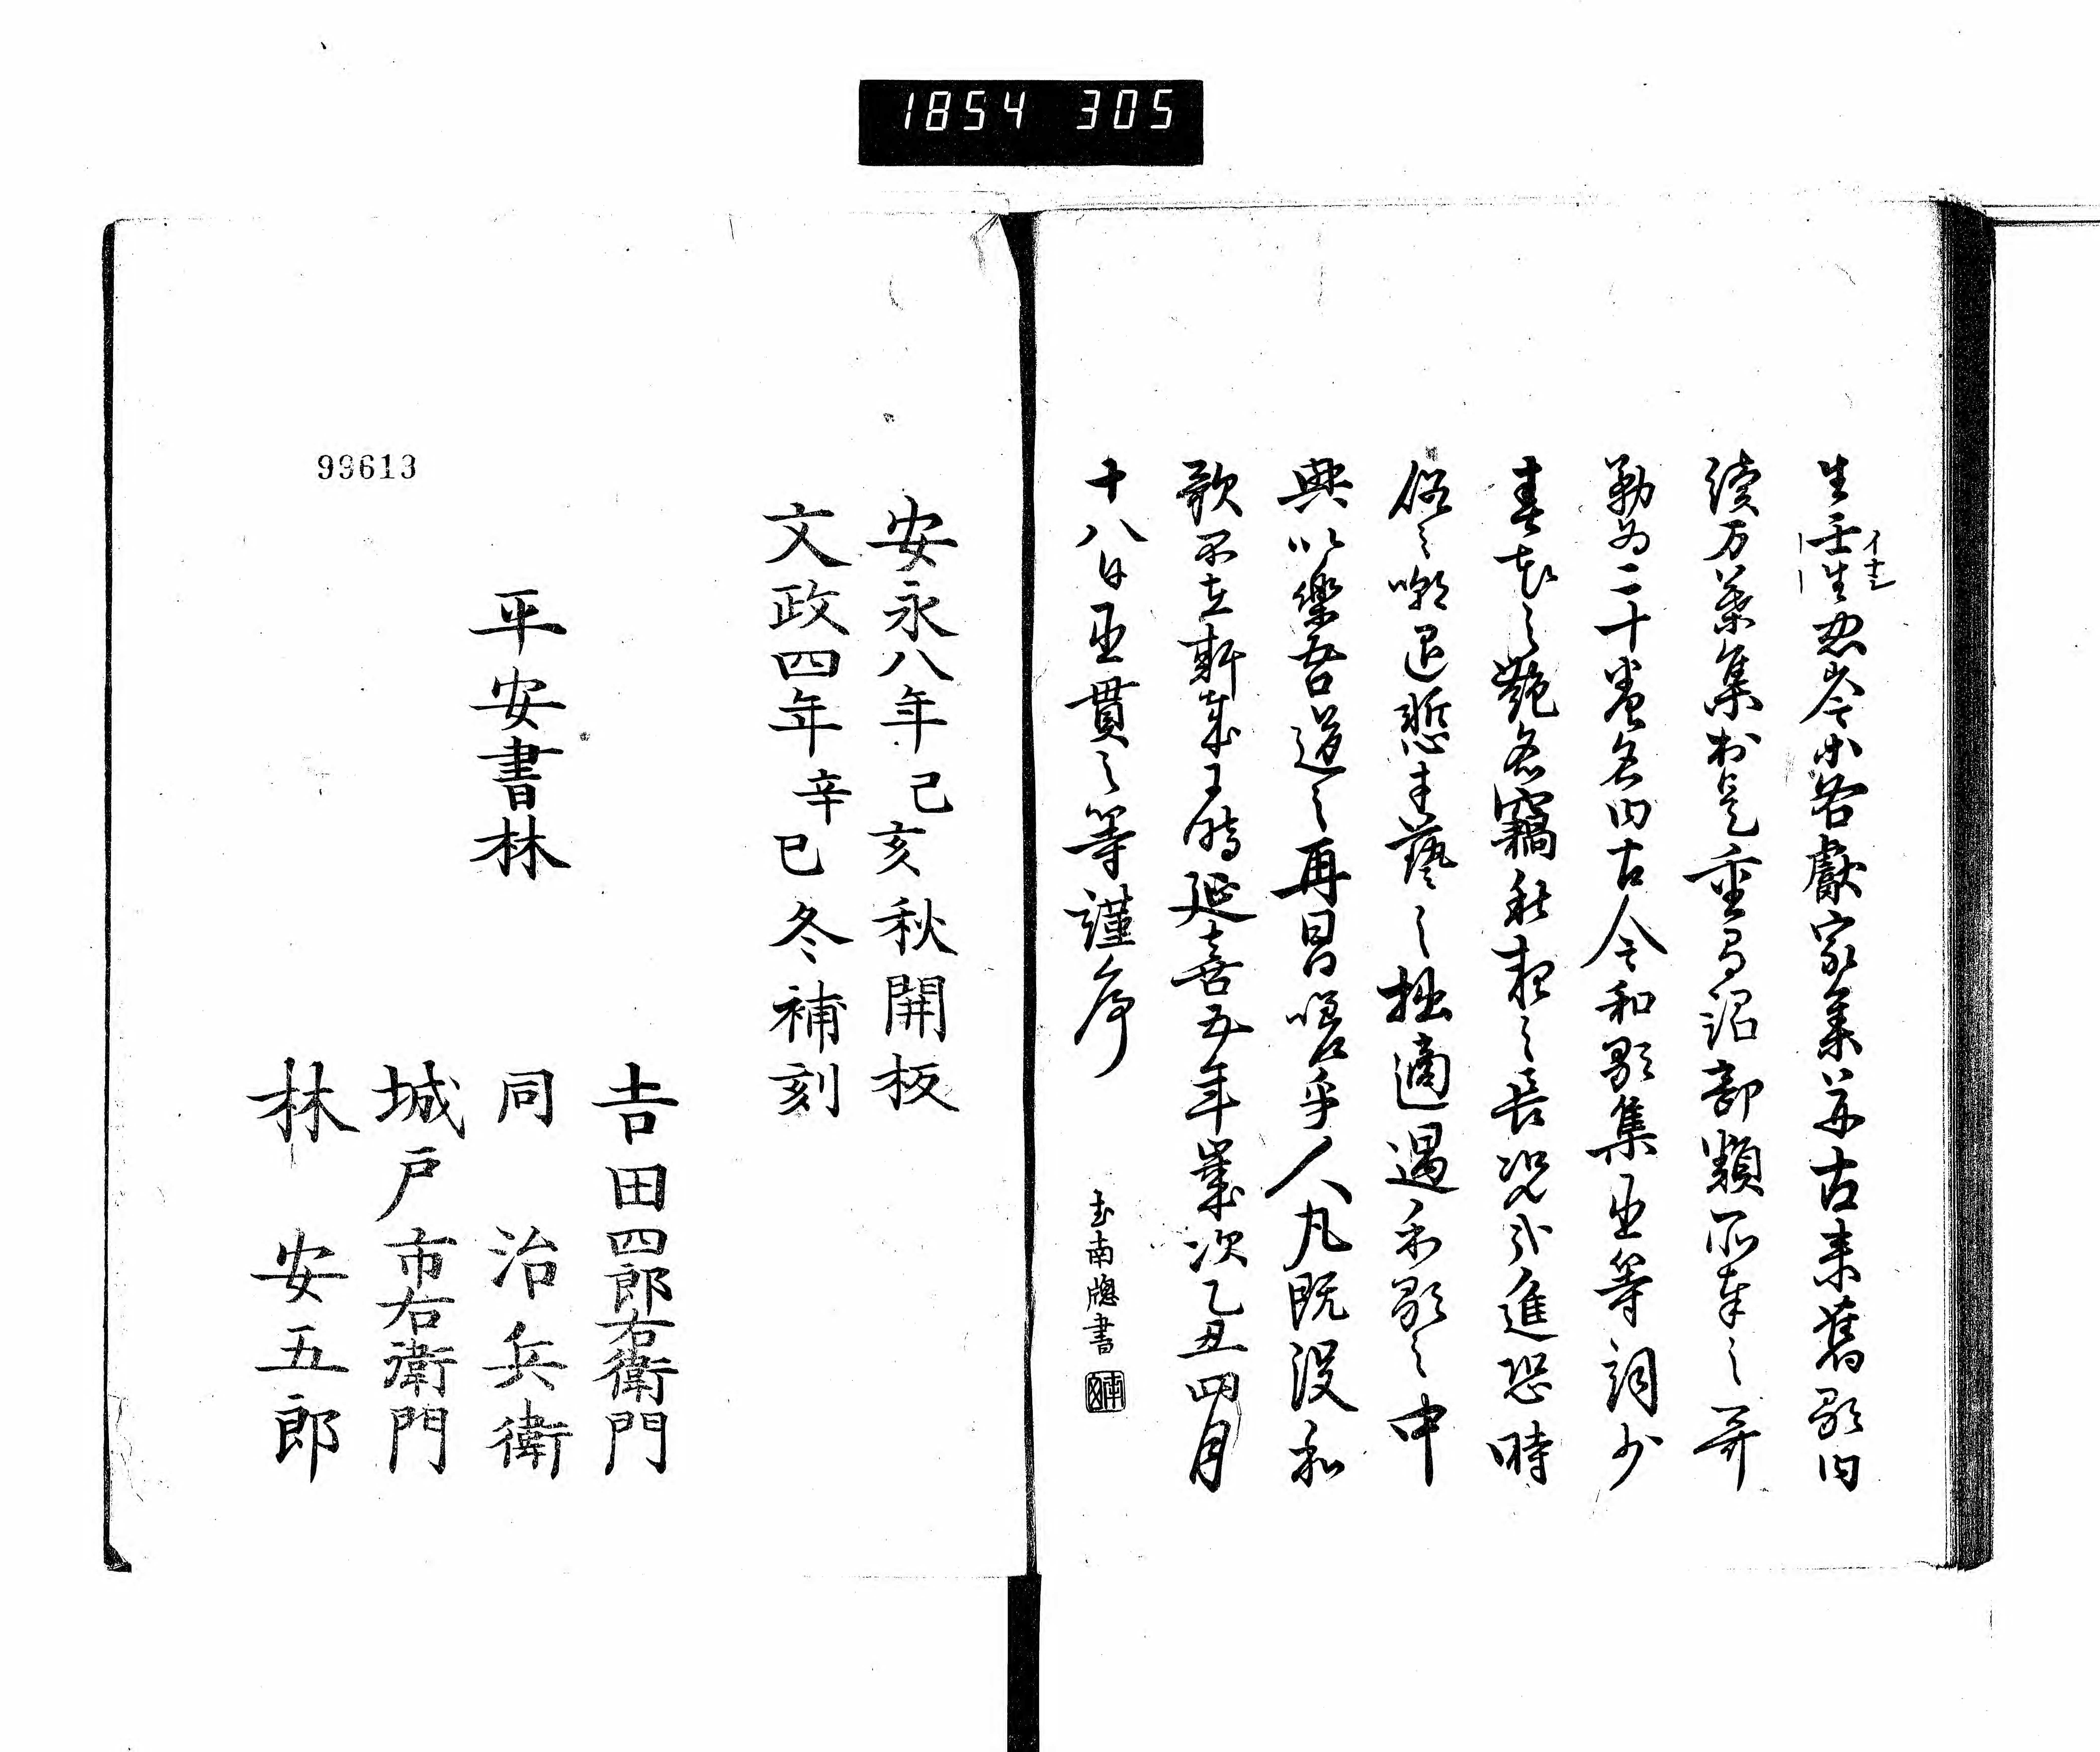 1854 305
生壬生忠岑等各獻家集并古来舊歌曰
續万葉集於是重有詔部類所奉之哥
勒為二十巻名曰古今和歌集臣等詞少
春花之艶名竊秋夜之長况乎進恐時
俗之嘲退慙才藝之拙適遇和歌之中
興以樂吾道之再昌嗟乎人丸既没和
歌不在斯哉于時延喜五年歳次乙丑四月
十八日臣貫之等謹序
南牕書
安永八年己亥秋開板
文政四年辛巳冬補刻
平安書林
吉田四郎右衛門
同治兵衛
城戸市右衛門
林安五郎
99613